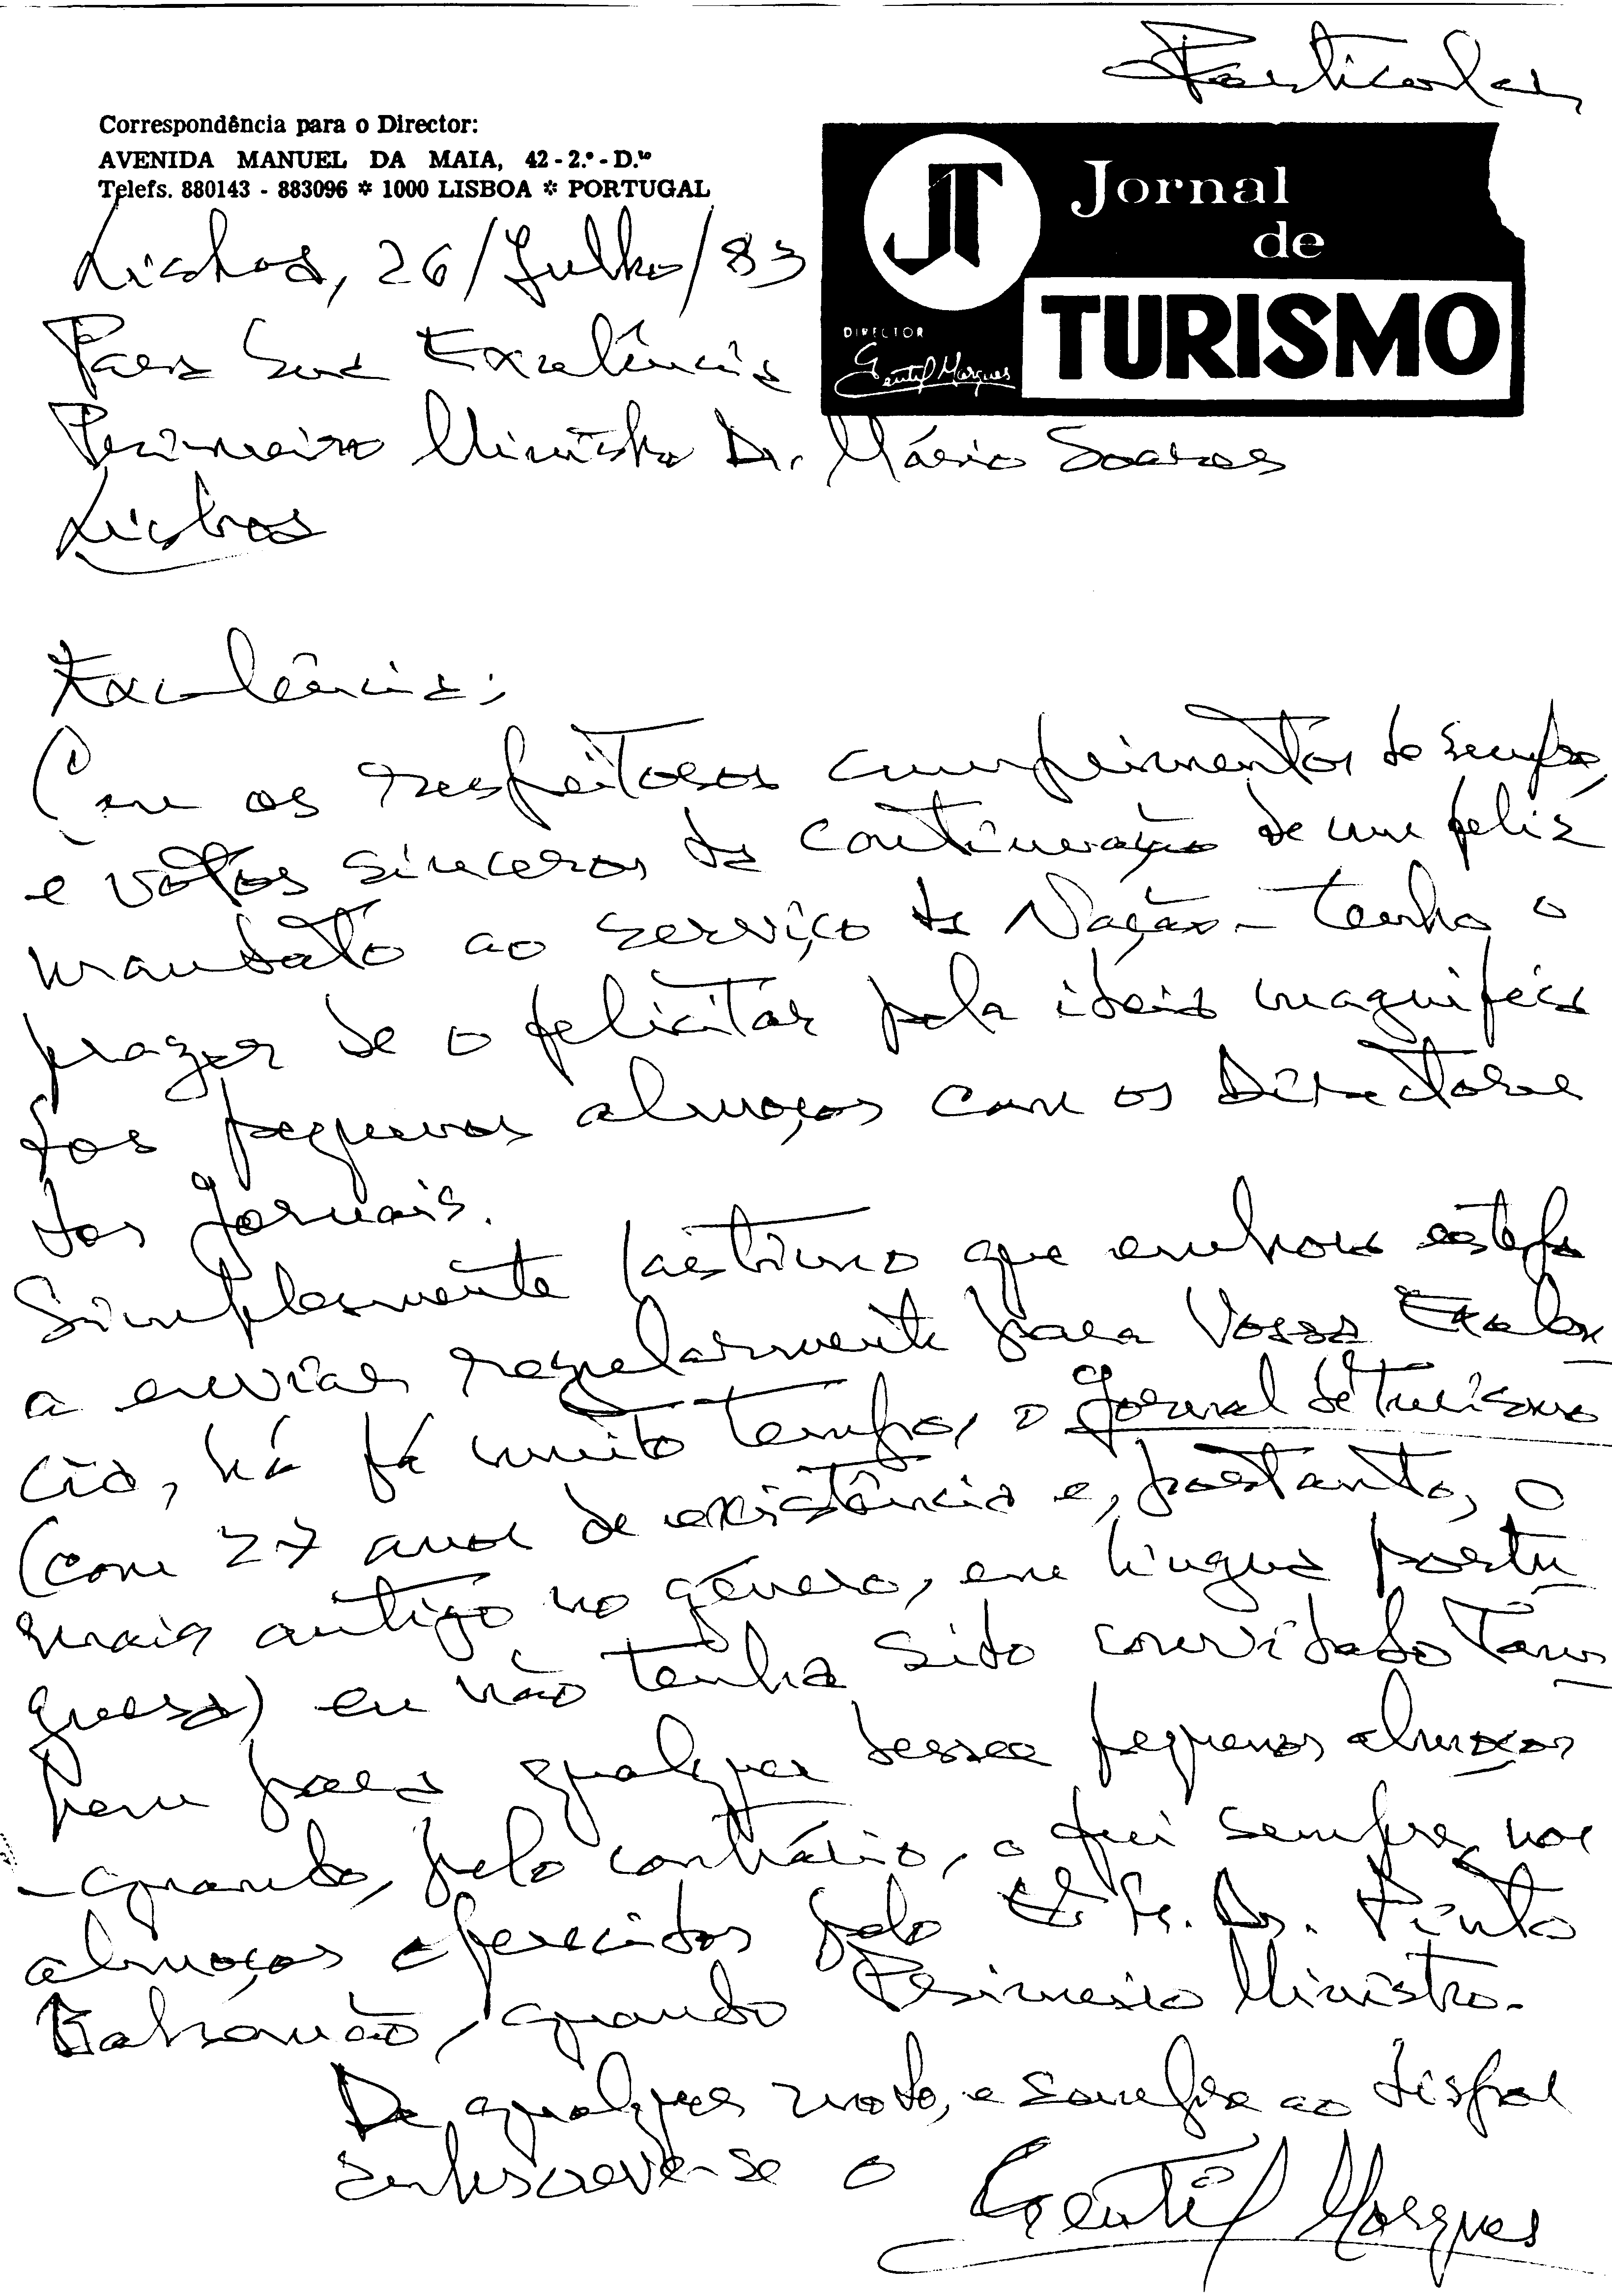 Particular
Correspondência para o Director:
AVENIDA MANUEL DA MAIA, 42-2.º-D.to
Telefs. 880143 - 883096 * 1000 LISBOA * PORTUGAL
JT Jornal
de
TURISMO
DIRECTOR
Gentil Marques
Lisboa, 26/Julho/83
Para Sua Excelência
Primeiro Ministro Dr. Mário Soares
Lisboa
Excelência:
Com os respeitosos cumprimentos de sempre,
e votos sinceros da continuação de um feliz
mandato ao serviço da Nação - tenho o
prazer de o felicitar pela ideia magnífica
dos pequenos almoços com os Directores
dos jornais.
Simplesmente lastimo que embora esteja
a enviar regularmente para Vossa Excelên
cia, há já muito tempo, o Jornal de Turismo
(com 27 anos de existência e, portanto, o
mais antigo no género, em língua portu
guesa) eu não tenha sido convidado tam
bem para qualquer desses pequenos almoços
- quando, pelo contrário, o fui sempre nos
almoços oferecidos pelo Sr. Dr. Pinto
Balsemão, quando Primeiro Ministro.
De qualquer modo, e sempre ao dispor
subscreve-se o
Gentil Marques